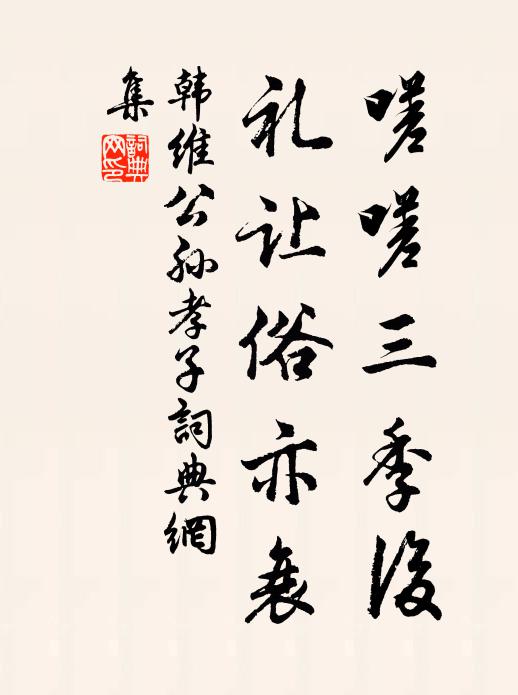 嗟嗟三季後
礼让俗亦衰
韩维公孙孝子詞典網
集
詞典
网印